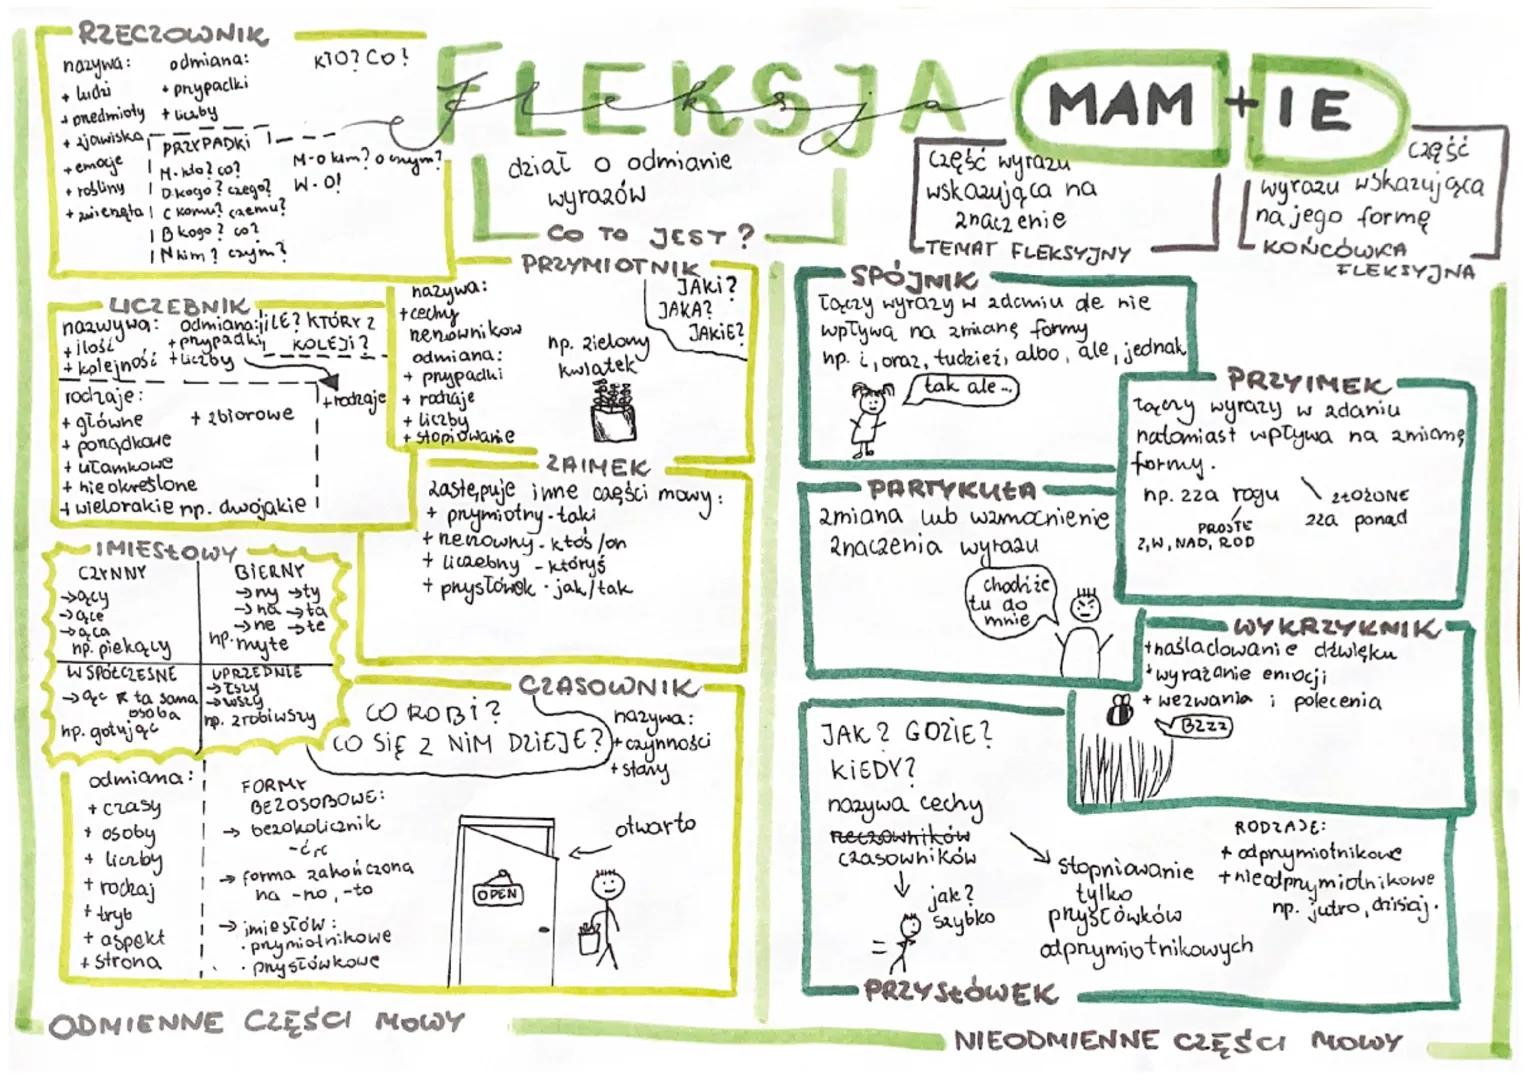 FLEKSJA
Fleksja
MAM + IE
dział o odmianie
wyrazów
CO TO JEST?
Część wyrazu
wskazująca na
znaczenie
TEMAT FLEKSYJNY
część
wyrazu wskazująca
na jego formę
KOŃCÓWKA
FLEKSYJNA
RZECZOWNIK
KTO? CO?
nazywa:
+ ludzi
+ przedmioty
+ zjawiska
+ emocje
+ rośliny
+ zwierzęta
odmiana:
+ przypadki
+ liczby
PRZYPADKI
M. kto? co?
D. kogo? czego?
C komu? czemu?
B kogo? co?
N kim? czym?
M - o kim? o czym?
W - O!
LICZEBNIK
nazwywa:
+ ilość
+ kolejność
odmiana:
+ przypadki
+ liczby
+ rodzaje
ILE? KTÓRY Z
KOLEJI?
rodzaje:
+ główne
+ porządkowe
+ ułamkowe
+ nieokreślone
+ wielorakie np. dwojakie
+ zbiorowe
PRZYMIOTNIK
JAKI?
JAKA?
JAKIE?
nazywa:
+ cechy
rzeczowników
odmiana:
+ przypadki
+ rodzaje
+ liczby
+ stopiowanie
np. zielony
kwiatek
ZAIMEK
zastępuje inne części mowy:
+ przymiotny - taki
+ rzeczowny - ktoś / on
+ liczebny - któryś
+ przysłówek - jak / tak
IMIESŁOWY
CZYNNY
→ ący
→ ące
→ ąca
np. piekący
BIERNY
→ ny → ty
→ na → ta
→ ne → te
np. myte
WSPÓŁCZESNE
→ ąc ta sama
osoba
np. gotując
UPRZEDNIE
→ łszy
→ wszy
np. zrobiwszy
CZASOWNIK
CO ROBI?
CO SIĘ Z NIM DZIEJE?
nazywa:
+ czynności
+ stany
odmiana:
+ czasy
+ osoby
+ liczby
+ rodzaj
+ tryb
+ aspekt
+ strona
FORMY
BEZOSOBOWE:
→ bezokolicznik
- ć, c
→ forma zakończona
na -no, -to
→ imiesłów:
· przymiotnikowe
· przysłówkowe
OPEN
otwarto
ODMIENNE CZĘŚCI MOWY
SPÓJNIK
Łączy wyrazy w zdaniu ale nie
wpływa na zmianę formy
np. i, oraz, tudzież, albo, ale, jednak
tak ale...
PRZYIMEK
Łączy wyrazy w zdaniu
natomiast wpływa na zmianę
formy.
np. zza rogu
PROSTE
Z, W, NAD, POD
ZŁOŻONE
zza ponad
PARTYKUŁA
zmiana lub wzmocnienie
znaczenia wyrazu
chodźże
tu do
mnie
WYKRZYKNIK
+ naśladowanie dźwięku
+ wyrażanie emocji
+ wezwania i polecenia
BZZZ
JAK? GDZIE?
KIEDY?
nazywa cechy
rzeczowników
czasowników
jak?
szybko
stopniawanie
tylko
przysłówków
odprzymiotnikowych
RODZAJE:
+ odprzymiotnikowe
+ nieodprzymiotnikowe
np. jutro, dzisiaj.
PRZYSŁÓWEK
NIEODMIENNE CZĘŚCI MOWY